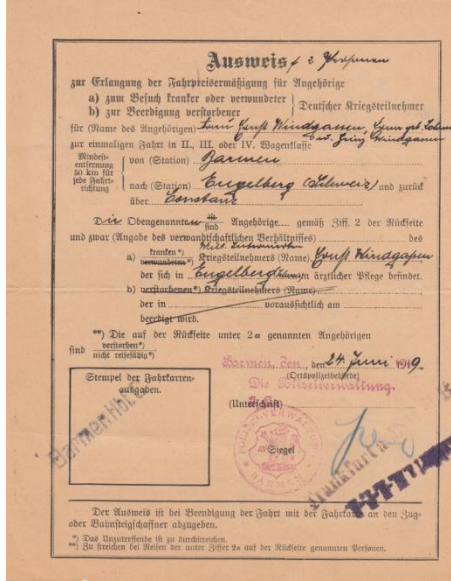 Ausweis f. 2 Personen
zur Erlangung der Fahrpreisermäßigung für Angehörige
a) zum Besuch kranker oder verwundeter } Deutscher Kriegsteilnehmer
b) zur Beerdigung verstorbener
für (Name des Angehörigen) Ernst Windgassen,
zur einmaligen Fahrt in II., III. oder IV. Wagenklasse
Mindestentfernung 50 km für jede Fahrtrichtung
von (Station) Barmen
nach (Station) Engelberg (Schweiz) und zurück
über Constanz
Die Obengenannten ist sind Angehörige gemäß Ziff. 2 der Rückseite
und zwar (Angabe des verwandtschaftlichen Verhältnisses) des
a) kranken*) verwundeten*) Kriegsteilnehmers (Name) Ernst Windgassen
der sich in Engelberg in ärztlicher Pflege befindet.
b) verstorbenen*) Kriegsteilnehmers (Name)
der in voraussichtlich am
beerdigt wird.
**) Die auf der Rückseite unter 2a genannten Angehörigen
sind verstorben*) nicht reisefähig*)
Barmen, den, den 24. Juni 1919.
(Ortspolizeibehörde)
Die Polizeiverwaltung.
Stempel der Fahrkartenausgaben.
(Unterschrift)
Barmen Hbf.
POLIZEI-VERWALTUNG BARMEN
Siegel
Frankfurt a
Der Ausweis ist bei Beendigung der Fahrt mit der Fahrkarte an den Zug-
oder Bahnsteigschaffner abzugeben.
*) Das Unzutreffende ist zu durchstreichen.
**) Zu streichen bei Reisen der unter Ziffer 2a auf der Rückseite genannten Personen.